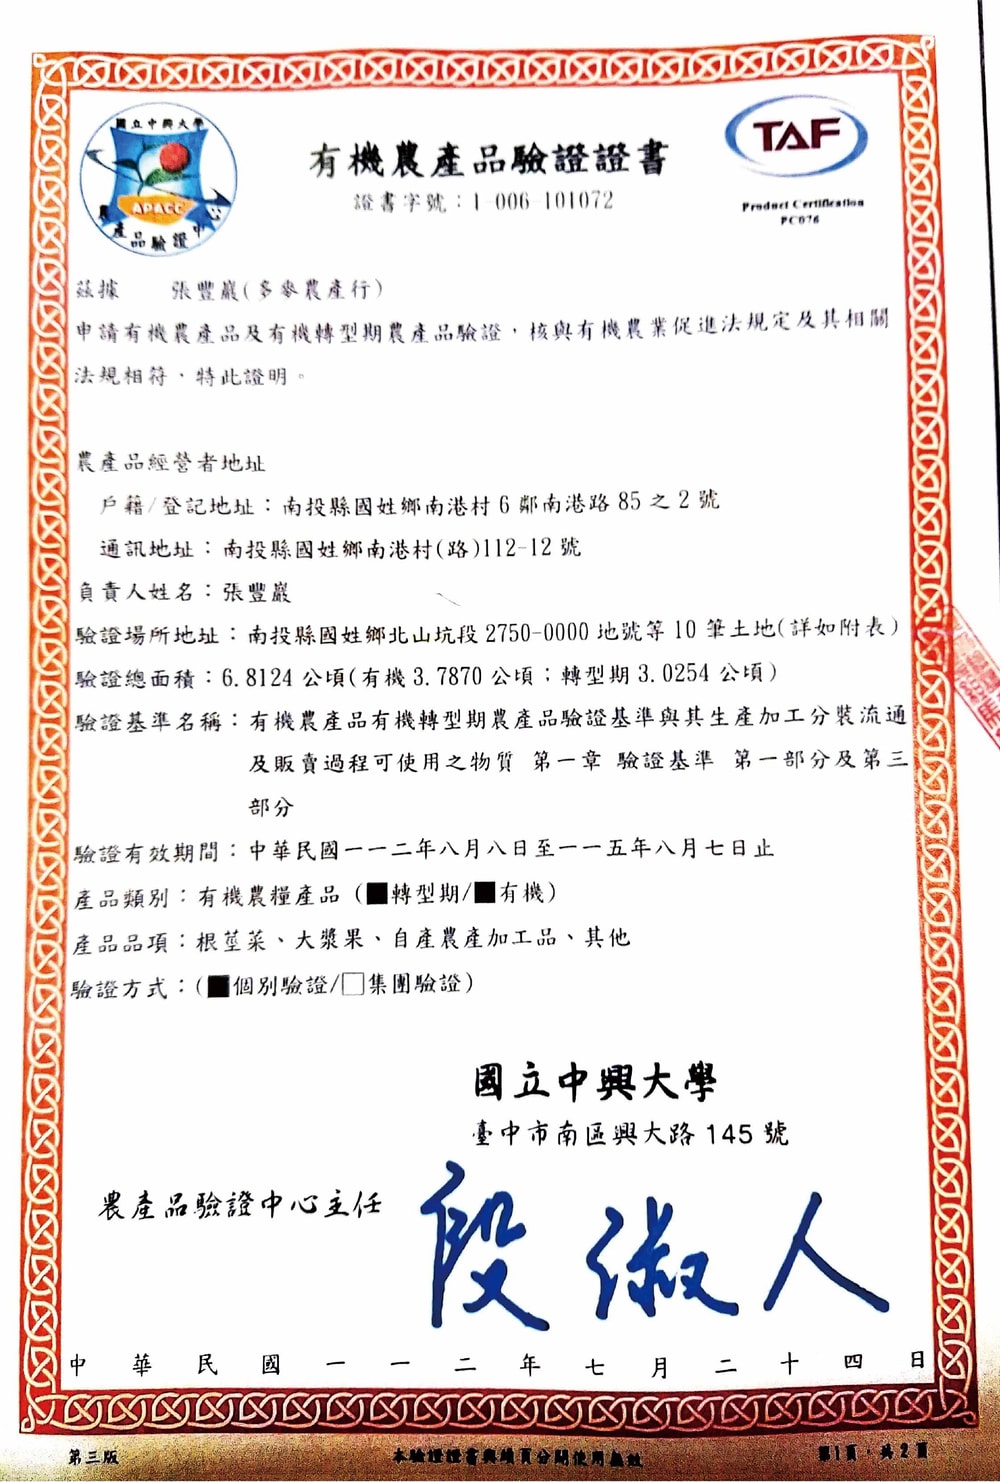 國立中興大學
APACC
農產品驗證中心
有機農產品驗證證書
證書字號：1-006-101072
TAF
Product Certification
PC076
茲據 張豐巖(多麥農產行)
申請有機農產品及有機轉型期農產品驗證，核與有機農業促進法規定及其相關
法規相符，特此證明。
農產品經營者地址
戶籍/登記地址：南投縣國姓鄉南港村6鄰南港路85之2號
通訊地址：南投縣國姓鄉南港村(路)112-12號
負責人姓名：張豐巖
驗證場所地址：南投縣國姓鄉北山坑段2750-0000地號等10筆土地(詳如附表)
驗證總面積：6.8124公頃(有機3.7870公頃；轉型期3.0254公頃)
驗證基準名稱：有機農產品有機轉型期農產品驗證基準與其生產加工分裝流通
及販賣過程可使用之物質 第一章 驗證基準 第一部分及第三
部分
驗證有效期間：中華民國一一二年八月八日至一一五年八月七日止
產品類別：有機農糧產品（■轉型期/■有機）
產品品項：根莖菜、大漿果、自產農產加工品、其他
驗證方式：(■個別驗證/□集團驗證)
國立中興大學
臺中市南區興大路145號
農產品驗證中心主任 段淑人
中華民國一一二年七月二十四日
第三版 本驗證證書與續頁分開使用無效 第1頁，共2頁